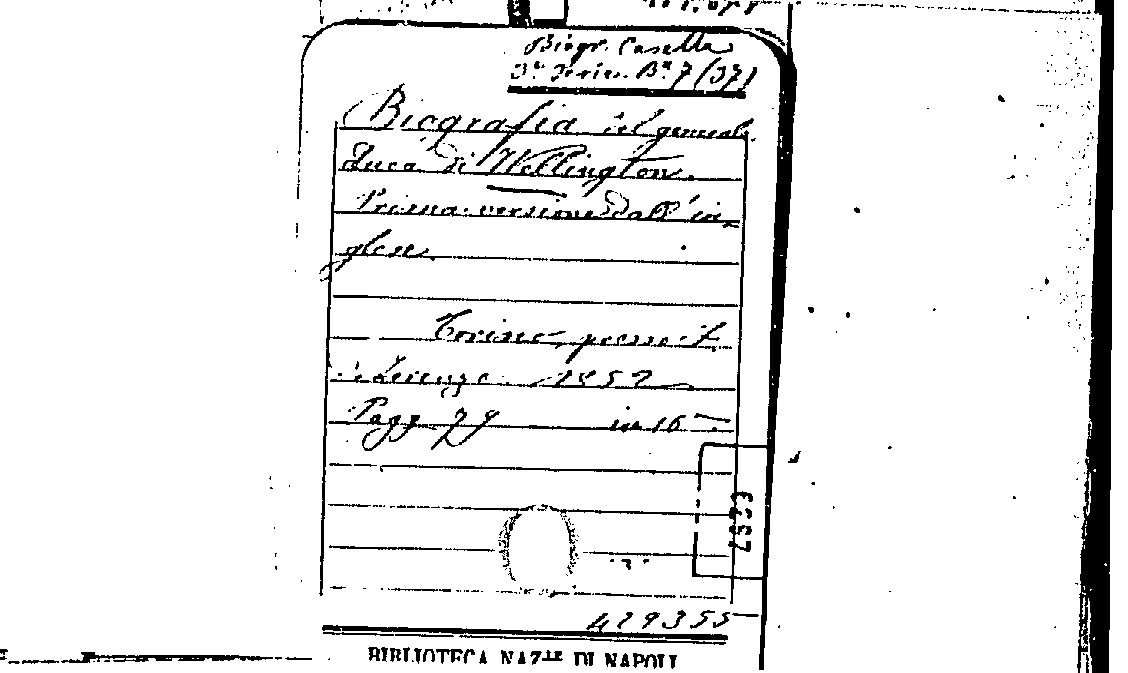 Biogr. Casella
3ª Serie. Bª 7 (37)
Biografia del generale
Duca di Wellington.
Prima versione dall'in-
glese.
Torino, presso T.
de Lorenzo 1852
Pagg. 79 in 16
429355
BIBLIOTECA NAZ.LE DI NAPOLI